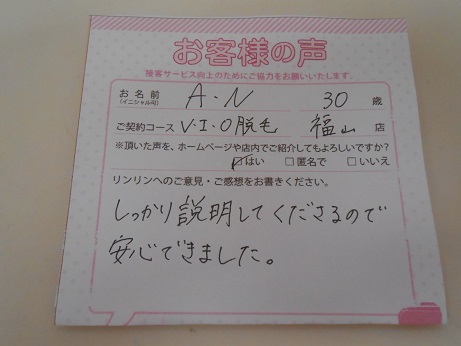 お客様の声
接客サービス向上のためにご協力をお願いいたします。
お名前 (イニシャル可) A・N 30 歳
ご契約コース V・I・O脱毛 福山 店
※頂いた声を、ホームページや店内でご紹介してもよろしいですか?
☑はい □匿名で □いいえ
リンリンへのご意見・ご感想をお書きください。
しっかり説明してくださるので
安心できました。